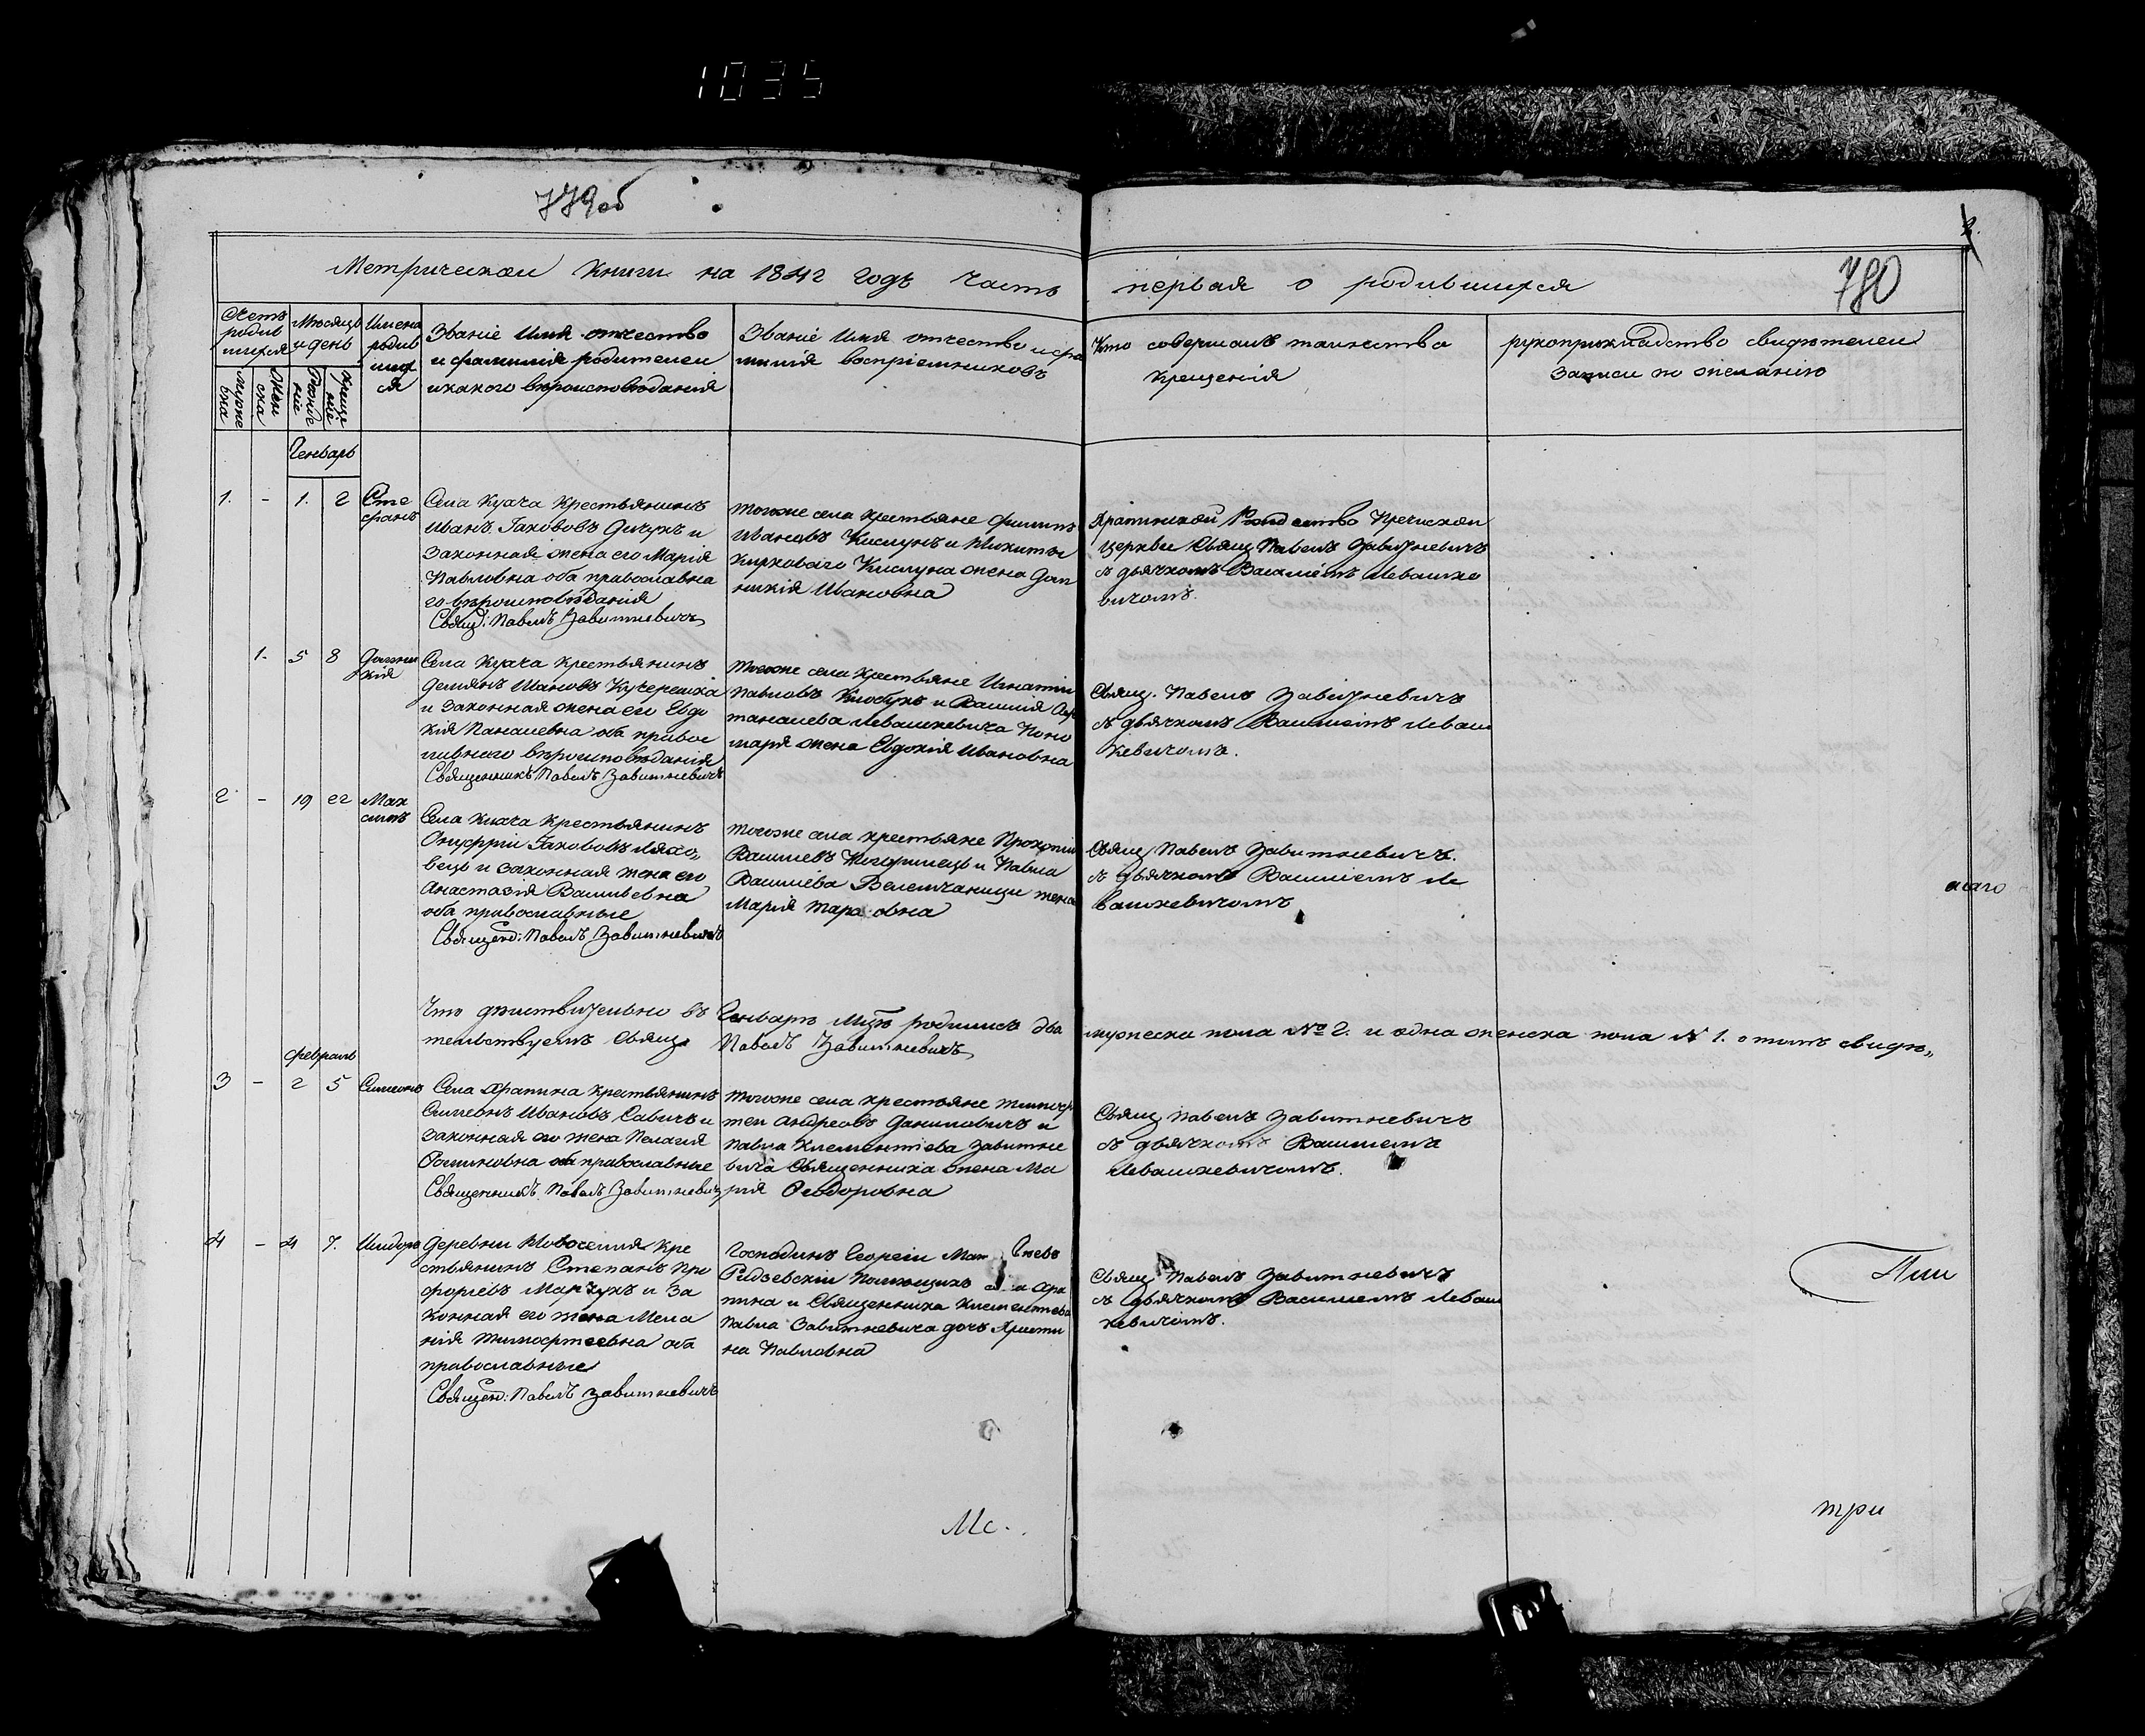 1035
779об
2.
780
Метрической Книги на 1842 годъ Часть первая о родившихся
Счетъ родив шихся
Мѣсяцъ и день
Имена родив шихся
Званіе Имя отчество
и фамилія родителей
и какого вѣроисповѣданія
Званіе Имя отчество и фа
милія воспріемниковъ
Кто совершалъ таинство
Крещенія
рукоприкладство свидѣтелей
записи по желанію
Муже ска
Жен ска
Рожде ніе
Креще ніе
Генварь
1. - 1. 2
Сте
фанъ
Села Кухча Крестьянинъ
Иванъ Іакововъ Дичукъ и
Законная жена его Марія
Павловна оба православна
го вѣроисповѣданія
Свящ: Павелъ Завитневичъ
тогоже села крестьяне Филипъ
Ивановъ Кислукъ и Никиты
Кислука жена Дом
никія Ивановна
Храпинской Рождество Пречиской
церкви Свящ Павелъ Завитневичъ
съ дьячкомъ Василіемъ Левашке
вичомъ.
1. 5 8
Домни
кія
Села Кухча Крестьянинъ
Демянъ Ивановъ Кучерешка
и Законная жена его Евдо
кія Панасевна оба право
славного вѣроисповѣданія
Священникъ Павелъ Завитневичъ
Тогоже села крестьяне Игнатій
Павловъ Клобукъ и Василія Аф
танасиева Левашкевича Поно
маря жена Евдокія Ивановна
Свящ. Павелъ Завитневичъ
съ дьячкомъ Василіемъ Леваш
кевичомъ.
2 - 19 22
Мак
симъ
Села Кухча Крестьянинъ
Онуфрій Іакововъ Ляхо„
вецъ и законная жена его
Анастазія Васильевна
оба православные
Священ: Павелъ Завитневичъ
тогоже села крестьяне Прокопій
Василіевъ и Павла
Василіева жена
Марія Тарасовна
Свящ Павелъ Завитневичъ.
съ дьячкомъ Василіемъ Ле
вашкевичомъ
Что дѣйствительно въ Генварѣ Мцѣ родились два мужеска пола № 2. и одна женска пола № 1. о томъ свидѣ„
тельствуетъ Свящ. Павелъ Завитневичъ
февраль
3 - 2 5
Симеонъ
Села Храпина Крестьянинъ
Симеонъ Ивановъ Савичъ и
Законная его жена Пелагія
оба православные
Священникъ Павелъ Завитневичъ
тогоже села крестьяне Тимоф
тей Андреовъ Даниловичъ и
Павла Климентіева Завитне
вича Священника жена Ма
рія Феодоровна
Свящ Павелъ Завитневичъ
съ дьячкомъ Василіемъ
Левашкевичомъ.
4 - 4 7.
Исидоръ
Деревни Новоселия Кре
стьянинъ Степанъ
Марчукъ и За
конная его жена Мела
нія Тимофтеевна оба
православные
Священ: Павелъ Завитневичъ
Господинъ Георгій
Помещикъ Хра
пина и Священника Климентева
Павла Завитневича дочъ Христи
на Павловна
Свящ Павелъ Завитневичъ
съ дьячкомъ Василіемъ Леваш
кевичомъ.
Мс.
три